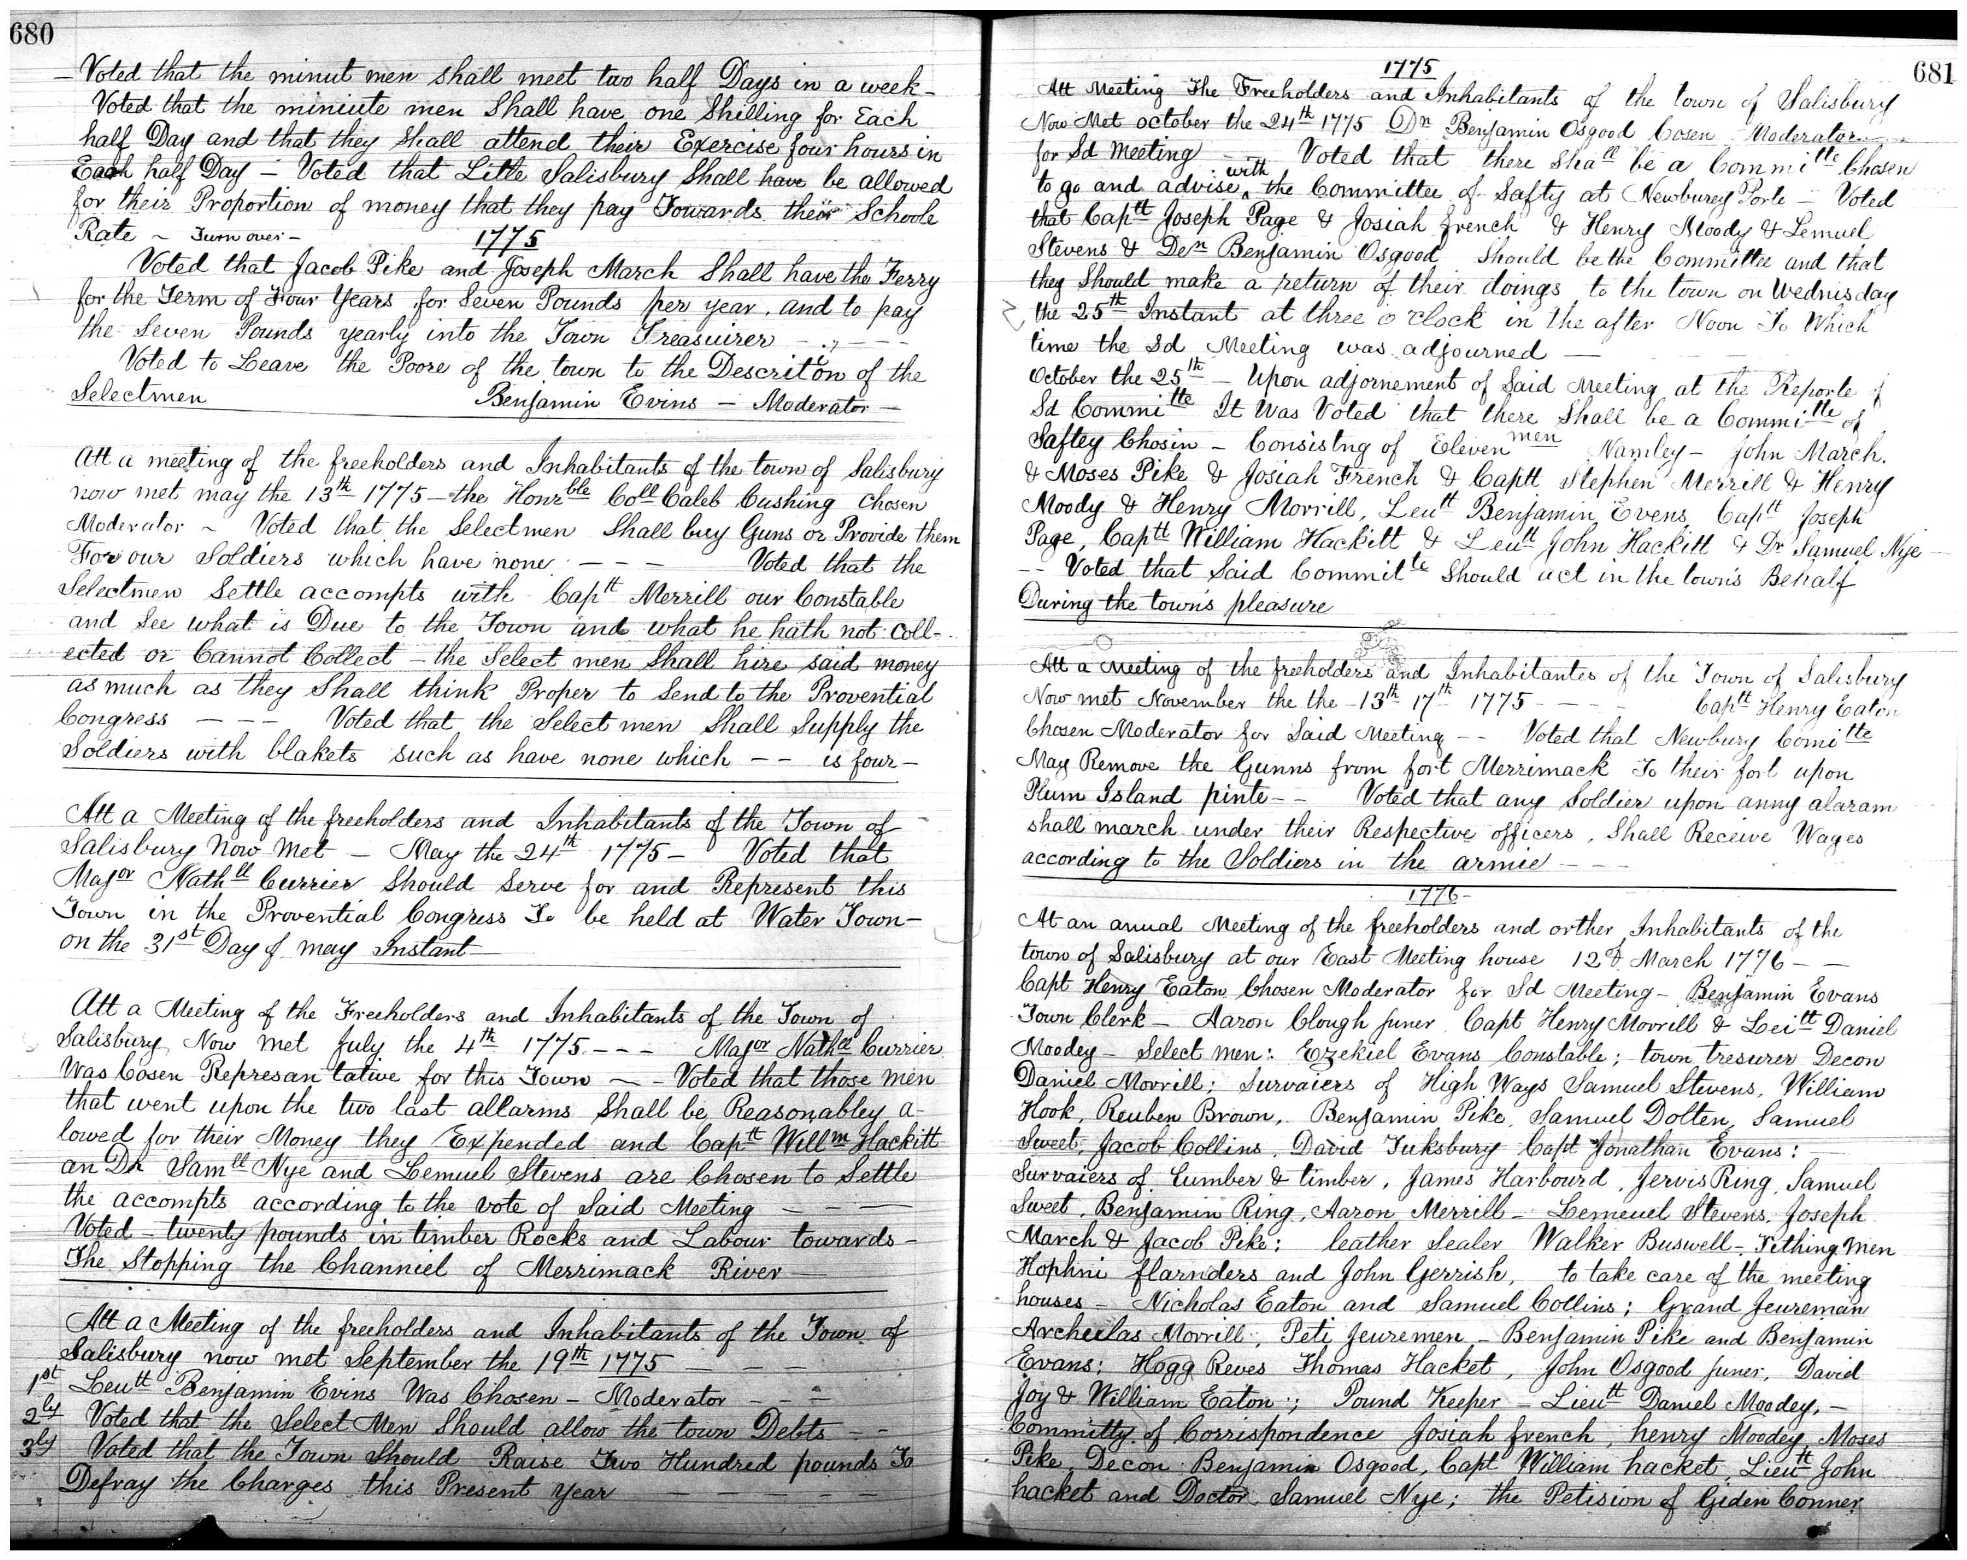 680
– Voted that the minut men shall meet two half Days in a week –
Voted that the miniute men Shall have one Shilling for Each
half Day and that they Shall attend their Exercise four hours in
Each half Day – Voted that Little Salisbury Shall have be allowed
for their Proportion of money that they pay Towards their Schoole
Rate ~ Turn over –
1775
Voted that Jacob Pike and Joseph March Shall have the Ferry
for the Term of Four Years for Seven Pounds per year. and to pay
the Seven Pounds yearly into the Town Treasuirer – . , – – –
Voted to Leave the Poore of the town to the Descriton of the
Selectmen Benjamin Evins – Moderator –
Att a meeting of the freeholders and Inhabitants of the town of Salisbury
now met may the 13th 1775 – the Honrble Coll Caleb Cushing chosen
Moderator ~ Voted that the Selectmen Shall buy Guns or Provide them
For our Soldiers which have none – – – Voted that the
Selectmen Settle accompts with Captt Merrill our Constable
and See what is Due to the Town and what he hath not Coll-
ected or Cannot Collect – the Select men Shall hire said money
as much as they Shall think Proper to Send to the Provential
Congress – – – Voted that the Select men Shall Supply the
Soldiers with blakets such as have none which – – is four –
Att a Meeting of the freeholders and Inhabitants of the Town of
Salisbury Now Met – May the 24th 1775 – Voted that
Major Nathll Currier Should Serve for and Represent this
Town in the Provential Congress To be held at Water Town –
on the 31st Day of may Instant –
Att a Meeting of the Freeholders and Inhabitants of the Town of
Salisbury Now Met July the 4th 1775 – – – Major Nathll Currier
Was Cosen Represan tative for this Town – – Voted that those men
that went upon the two last allarms Shall be Reasonabley a-
lowed for their Money they Expended and Captt Willm Hackitt
an Dr Samll Nye and Lemuel Stevens are Chosen to Settle
the accompts according to the vote of Said Meeting – – –
Voted – twenty pounds in timber Rocks and Labour towards –
The Stopping the Channiel of Merrimack River –
Att a Meeting of the freeholders and Inhabitants of the Town of
Salisbury now met September the 19th 1775 – – –
1st Leutt Benjamin Evins Was Chosen – Moderator – – –
2ly Voted that the Select Men Should allow the town Debts – –
3ly Voted that the Town Should Raise Two Hundred pounds To
Defray the Charges this Present year – – – – –
681
1775
Att Meeting The Freeholders and Inhabitants of the town of Salisbury
Now Met october the 24th 1775 Dn Benjamin Osgood Cosen Moderator –
for Sd Meeting – – Voted that there Shall be a Committe Chosen
to go and advise with the Committee of Safty at Newburey Porte – Voted
that Captt Joseph Page & Josiah french & Henry Moody & Lemuel
Stevens & Den Benjamin Osgood Should be the Committee and that
they Should make a return of their doings to the town on Wednisday
the 25th Instant at three o'clock in the after Noon To Which
time the Sd Meeting was adjourned –
October the 25th – Upon adjornement of Said Meeting at the Reporte of
Sd Committe It Was Voted that there Shall be a Committe of
Saftey Chosin – Consistng of Eleven men Namley – John March.
& Moses Pike & Josiah French & Captt Stephen Merrill & Henry
Moody & Henry Morrill, Leutt Benjamin Evens, Captt Joseph
Page, Captt William Hackitt & Leutt John Hackitt & Dr Samuel Nye –
– – Voted that Said Committe Should act in the town's Behalf
During the town's pleasure
Att a Meeting of the freeholders and Inhabitantes of the Town of Salisbury
Now met November the the 13th 17th 1775 – – – – Captt Henry Eaton
Chosen Moderator for Said Meeting – – Voted that Newbury Comitte
May Remove the Gunns from fort Merrimack To their fort upon
Plum Island pinte – – Voted that any Soldier upon anny alaram
shall march under their Respective officers, Shall Receive Wages
according to the Soldiers in the armie – – –
1776 –
At an anual Meeting of the freeholders and orther Inhabitants of the
town of Salisbury at our East Meeting house 12 of March 1776 – –
Capt Henry Eaton Chosen Moderator for Sd Meeting – Benjamin Evans
Town Clerk – Aaron Clough juner, Capt Henry Morrill & Leitt Daniel
Moodey – Select men: Ezekiel Evans Constable; town tresurer Decon
Daniel Morrill; Survaiers of High Ways Samuel Stevens, William
Hook, Reuben Brown, Benjamin Pike, Samuel Dolten, Samuel
Sweet, Jacob Collins, David Tuksbury Capt Jonathan Evans:
Survaiers of Lumber & timber, James Harbourd, Jervis Ring, Samuel
Sweet, Benjamin Ring, Aaron Merrill – Lemeuel Stevens, Joseph
March & Jacob Pike: leather Sealer Walker Buswell – Tithing men
Hophni flarnders and John Gerrish, to take care of the meeting
houses – Nicholas Eaton and Samuel Collins; Grand Jeureman
Archeilas Morrill; Peti Jeuremen – Benjamin Pike and Benjamin
Evans: Hogg Reves Thomas Hacket, John Osgood juner, David
Joy & William Eaton; Pound Keeper – Lieutt Daniel Moodey, –
Committy of Corrispondence Josiah french, henry Moodey, Moses
Pike, Decon Benjamin Osgood, Capt William hacket, Lieutt John
hacket and Doctor Samuel Nye; the Petision of Giden Conner